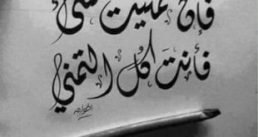 فإن تمنيت شيئا
فأنت كل التمني